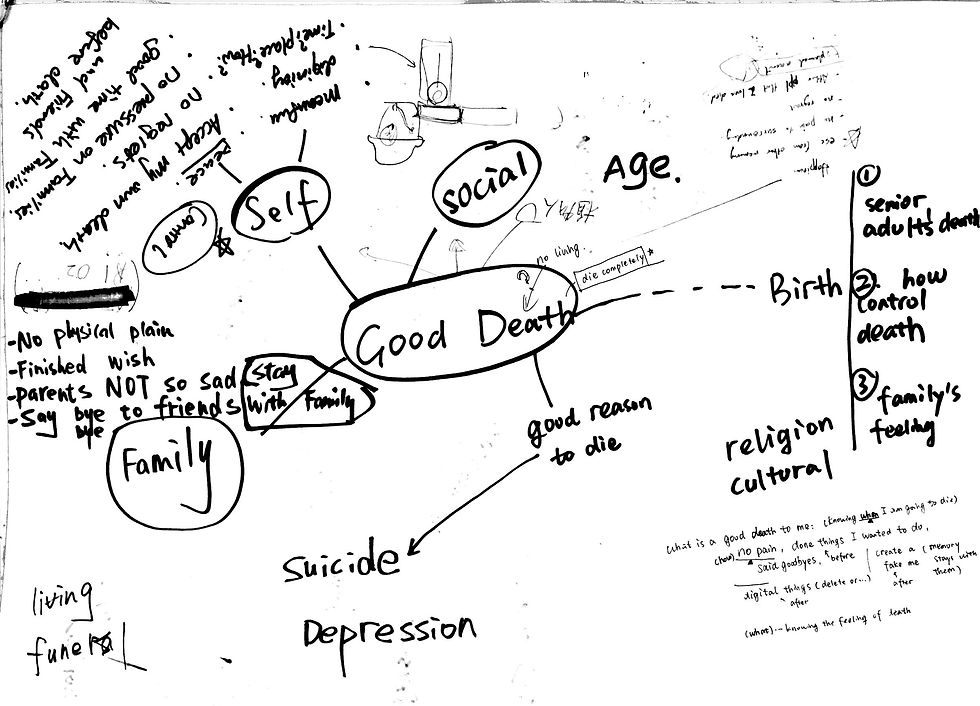 before death.
and friends
good time with Families
no pressure on Families.
no regrets.
Accept my own death.
peace.
Time? place? How?
dignity
meanful
Self
Control
social
Age.
no living
die completely *
Good Death
Birth
① senior adults death
② how control death
③ family's feeling
- No physical plain
- Finished wish
- parents NOT so sad
- say bye bye to friends
stay with Family
Family
good reason
to die
religion
cultural
suicide
Depression
living
funeral
What is a good death to me: (knowing when I am going to die)
(how) no pain, done things I wanted to do,
said goodbyes. before
create a fake me after
(memory stays with them)
digital things (delete or...)
after
(what) -- knowing the feeling of death
- no regret
- no pain to surrounding